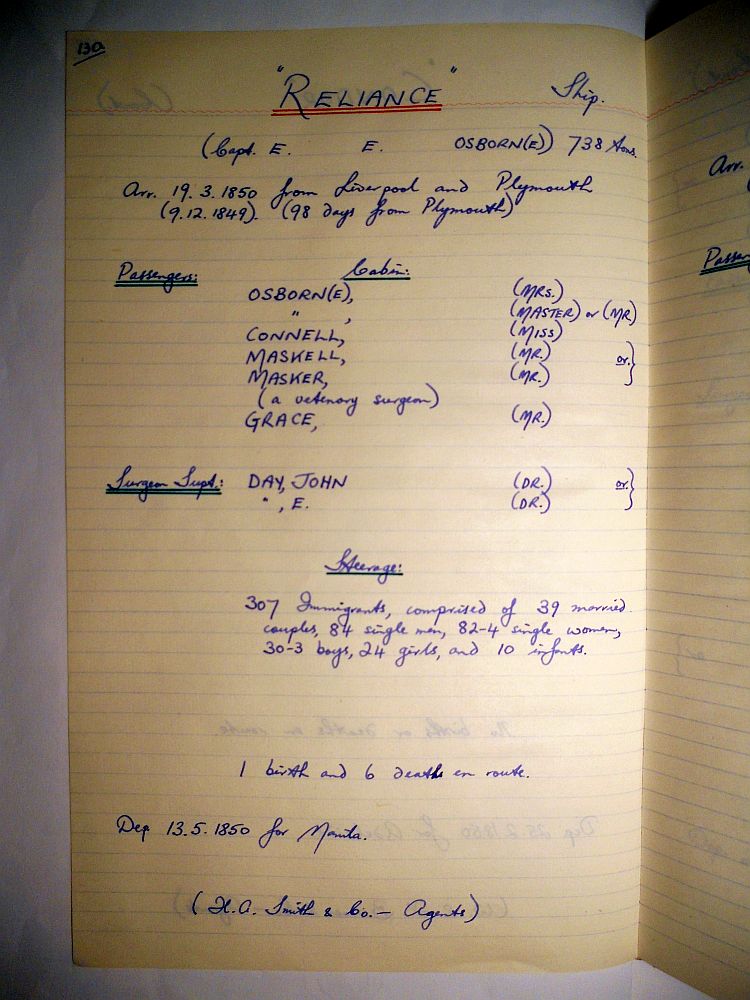 130
"RELIANCE" Ship.
(Capt. E. E. OSBORN(E)) 738 tons.
Arr. 19.3.1850 from Liverpool and Plymouth
(9.12.1849). (98 days from Plymouth)
Passengers: Cabin:
OSBORN(E), (MRS.)
" , (MASTER) or (MR)
CONNELL, (MISS)
MASKELL, (MR.) or. }
MASKER, (MR.)
(a vetenary surgeon)
GRACE, (MR.)
Surgeon Supt.: DAY, JOHN (DR.) or. }
" , E. (DR.)
Steerage:
307 Immigrants, comprised of 39 married
couples, 84 single men, 82-4 single women,
30-3 boys, 24 girls, and 10 infants.
1 birth and 6 deaths en route.
Dep. 13.5.1850 for Manila.
(H.A. Smith & Co. - Agents)
Arr.